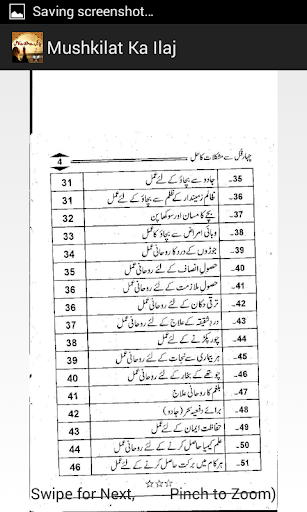 Saving screenshot...
Mushkilat Ka Ilaj
4 چہار قل سے مشکلات کا حل
35۔ جادو سے بچاؤ کے لئے عمل 31
36۔ ظالم زمیندار کے ظلم سے بچاؤ کے لئے عمل 31
37۔ بچے کا مسان اور سوکھا پن 32
38۔ وبائی امراض سے بچاؤ کا عمل 33
39۔ جوڑوں کے درد کا روحانی عمل 34
40۔ حصول انصاف کے لئے روحانی عمل 35
41۔ حصول ملازمت کے لئے روحانی عمل 36
42۔ ترقی دکان کے لئے روحانی عمل 36
43۔ درد شقیقہ کے علاج کے لئے روحانی عمل 37
44۔ چور پکڑنے کے لئے عمل 38
45۔ ہر بیماری سے نجات کے لئے روحانی عمل 39
46۔ چوتھے کے بخار کے لئے روحانی عمل 40
47۔ بلغم کا روحانی علاج 41
48۔ برائے دفعیہ سحر (جادو) 42
49۔ حفاظت ایمان کے لئے عمل 43
50۔ علم کیمیا حاصل کرنے کے لئے عمل 44
51۔ ہر کام میں برکت حاصل کرنے کے لئے عمل 46
Swipe for Next, Pinch to Zoom)